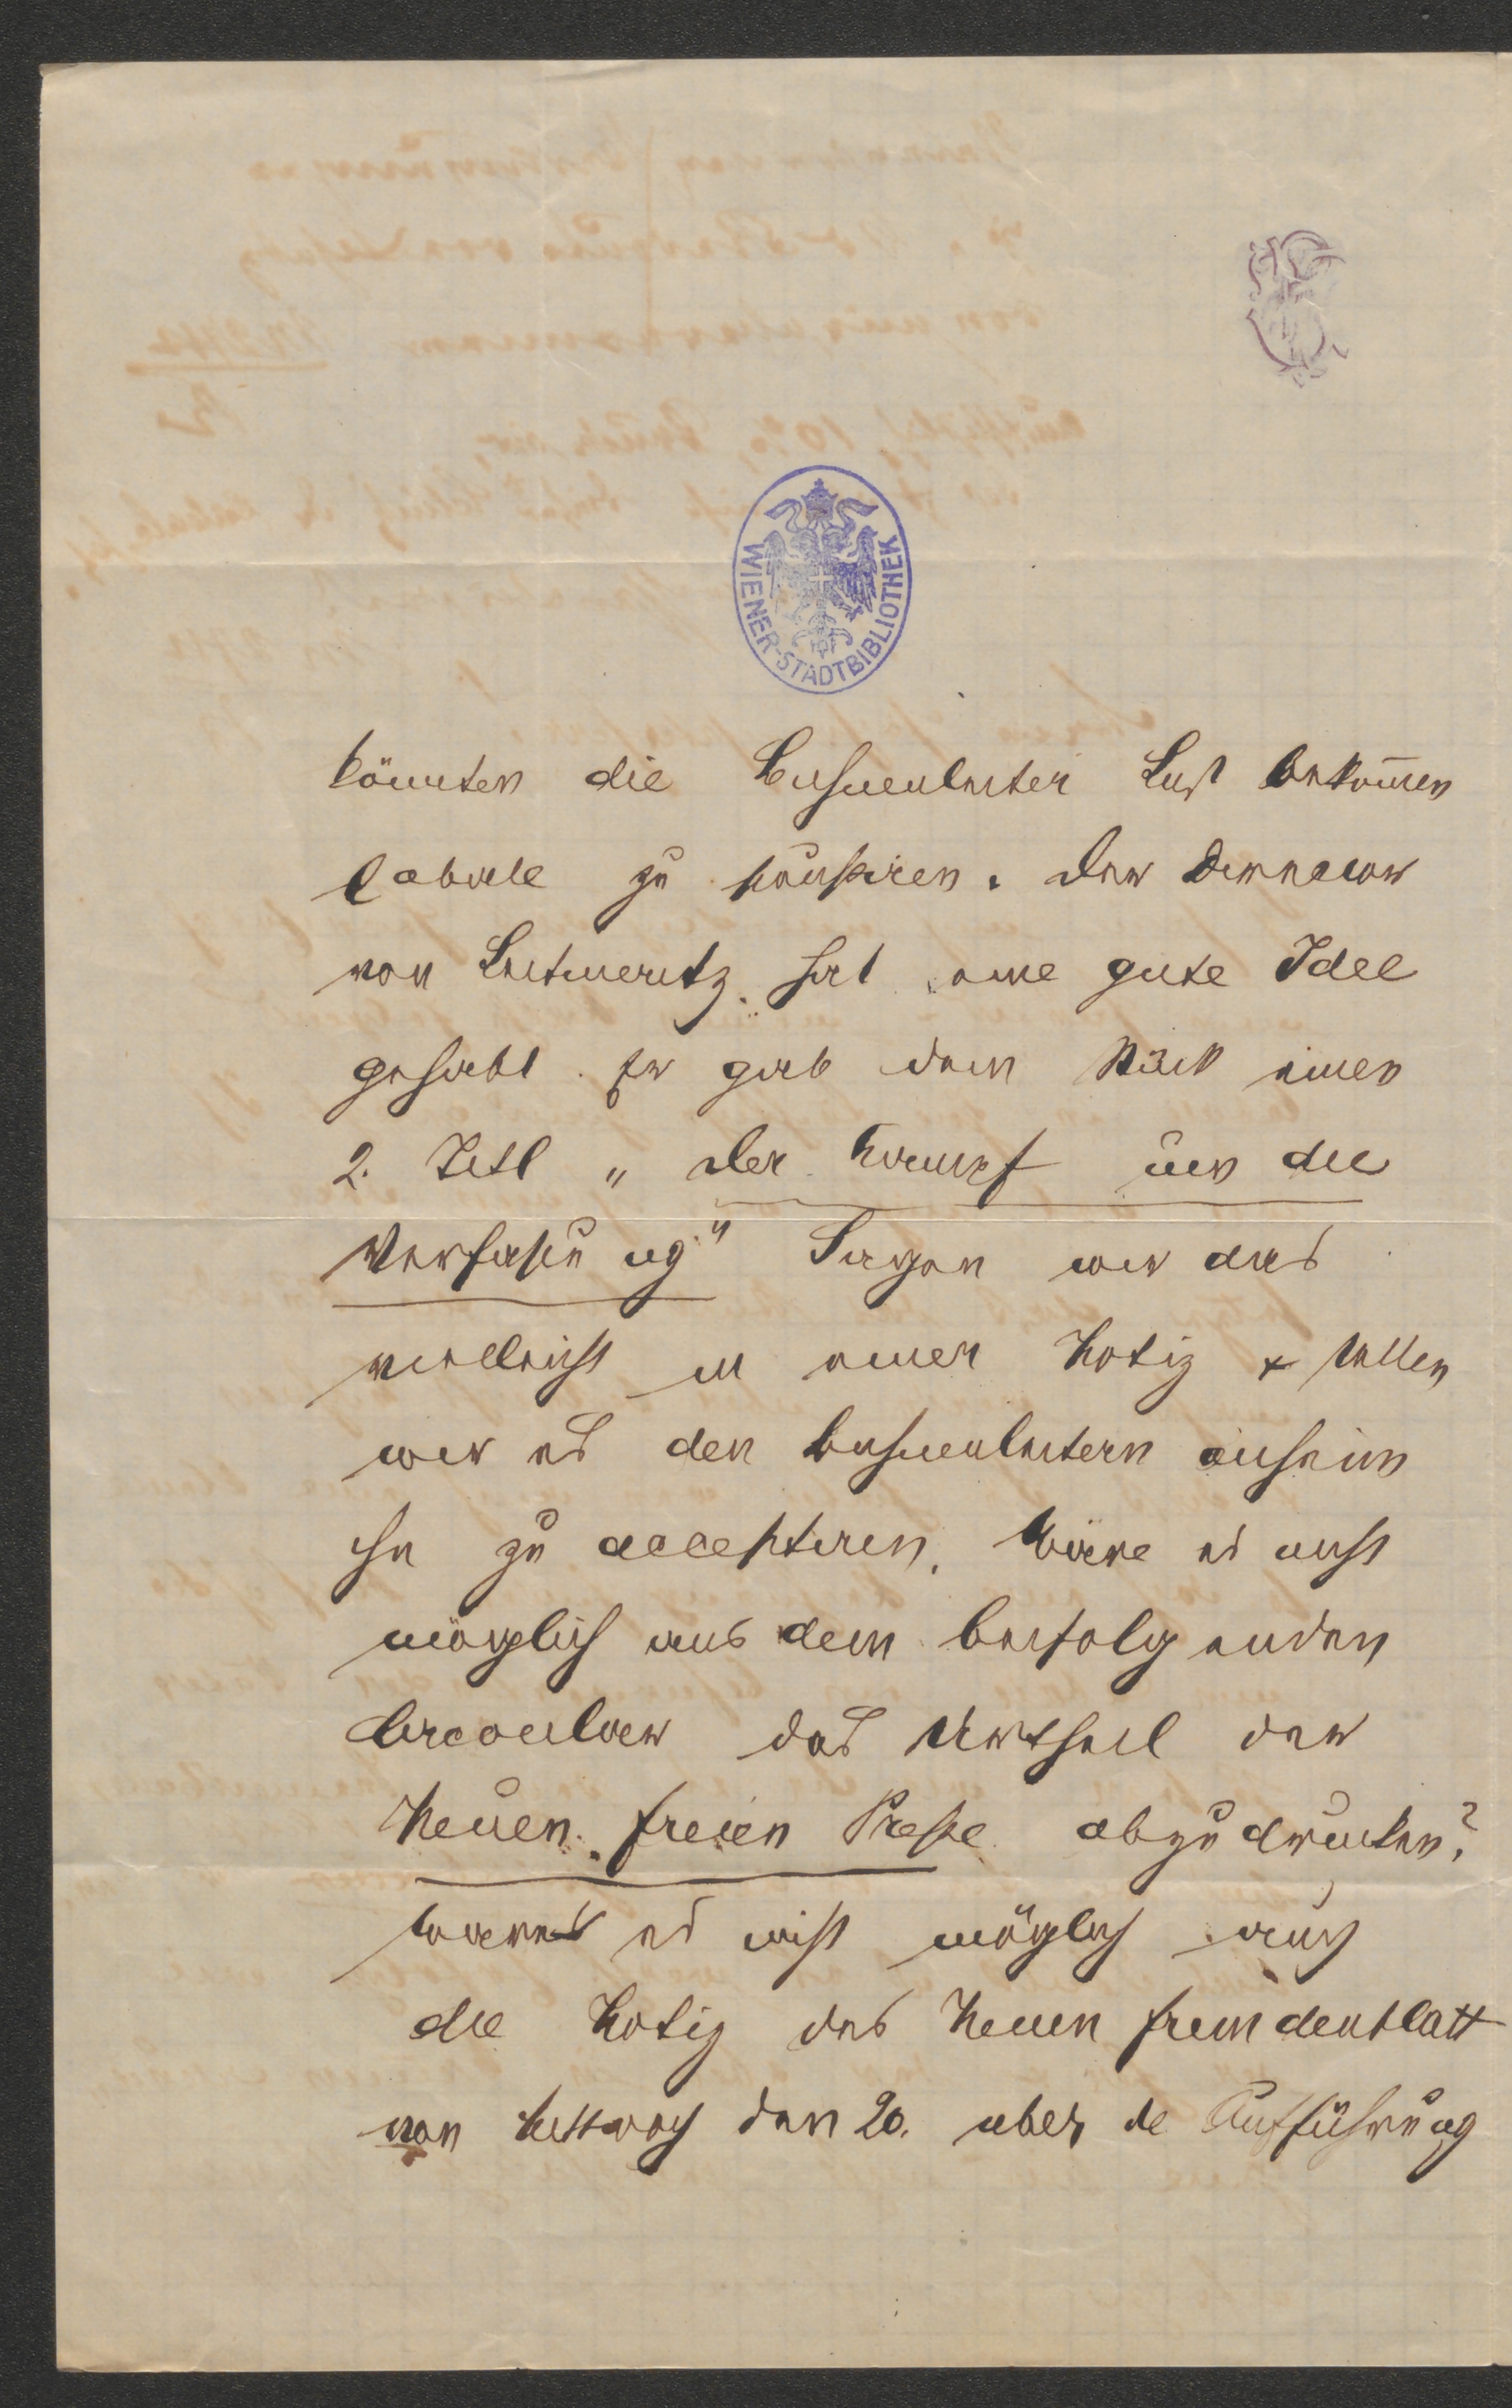 WIENER-STADTBIBLIOTHEK
könnten die Buhnenleiter Lust bekom̅en
Cabale zu hausiren. Der Director
von Leitmeritz hat eine gute Idee
gehabt. Er gab dem Stück einen
2. Titl „Der Kampf um die
Verfassung" Sagen wir das
vielleicht in einer Notiz & stellen
wir es den Buhnenleitern anheim
ihn zu acceptiren. Wäre es nicht
möglich aus dem beifolgenden
Circoular das Urtheil der
Neuen freien Presse abzudrucken?
Wäre es nicht möglich auch
die Notiz des Neuen fremdenblatt
von Mittwoch den 20. uber de Aufführung